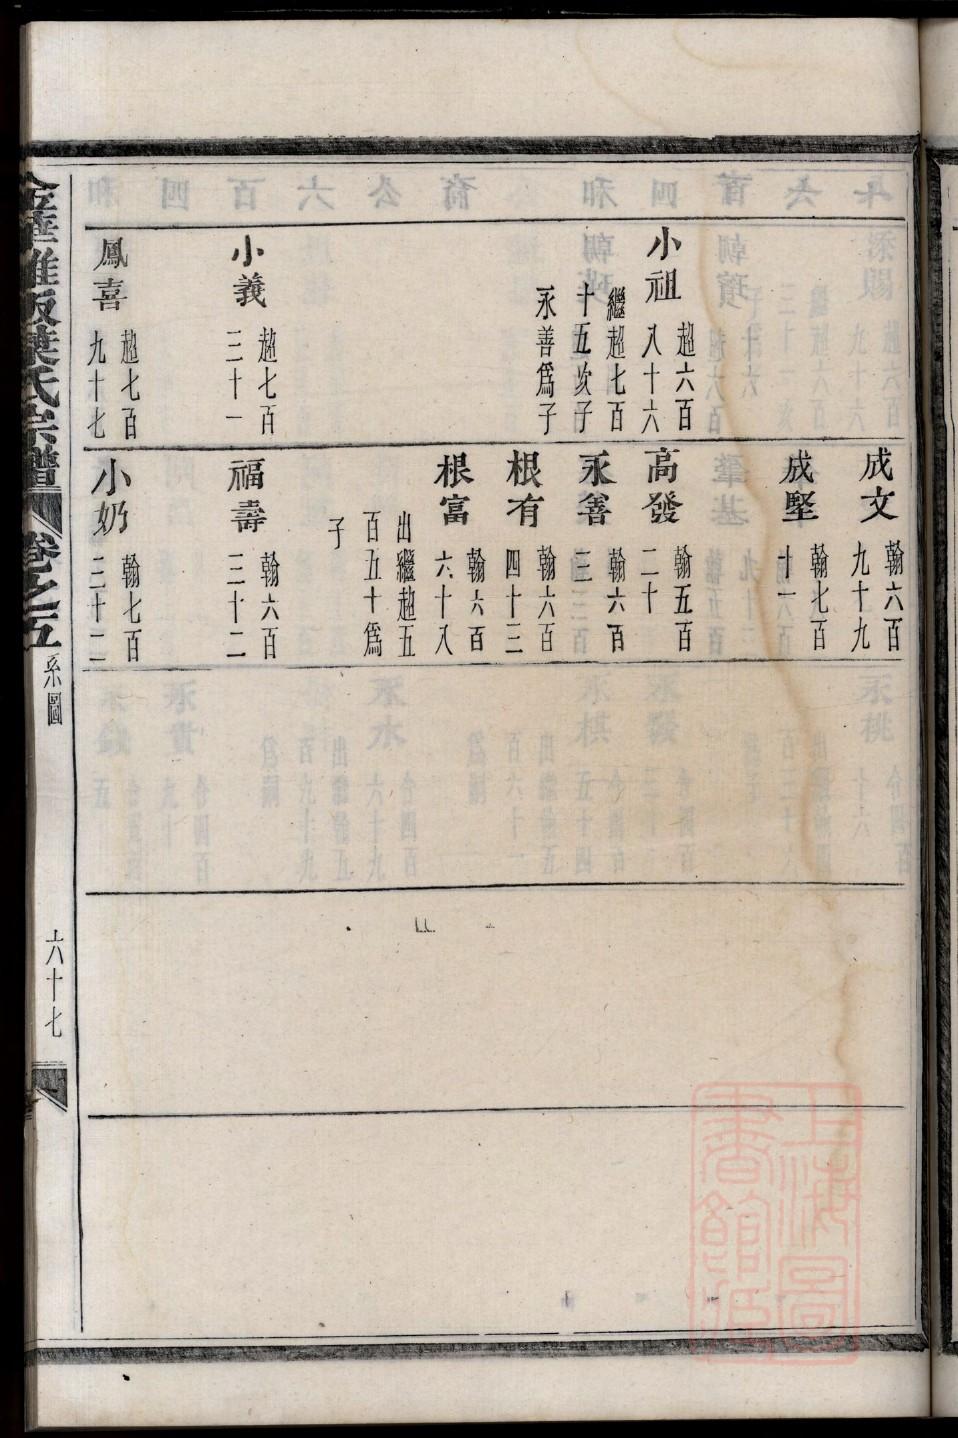 小祖
超六百
八十六
繼超七百
十五次子
永善爲子
小義
超七百
三十一
鳳喜
超七百
九十七
成文
翰六百
九十九
成堅
翰七百
十一
高發
翰五百
二十
永善
翰六百
三
根有
翰六百
四十三
根富
翰六百
六十八
出繼超五
百五十爲
子
福壽
翰六百
三十二
小奶
翰七百
三十二
葉氏宗譜
卷之五
系圖
六十七
上海圖
書館藏